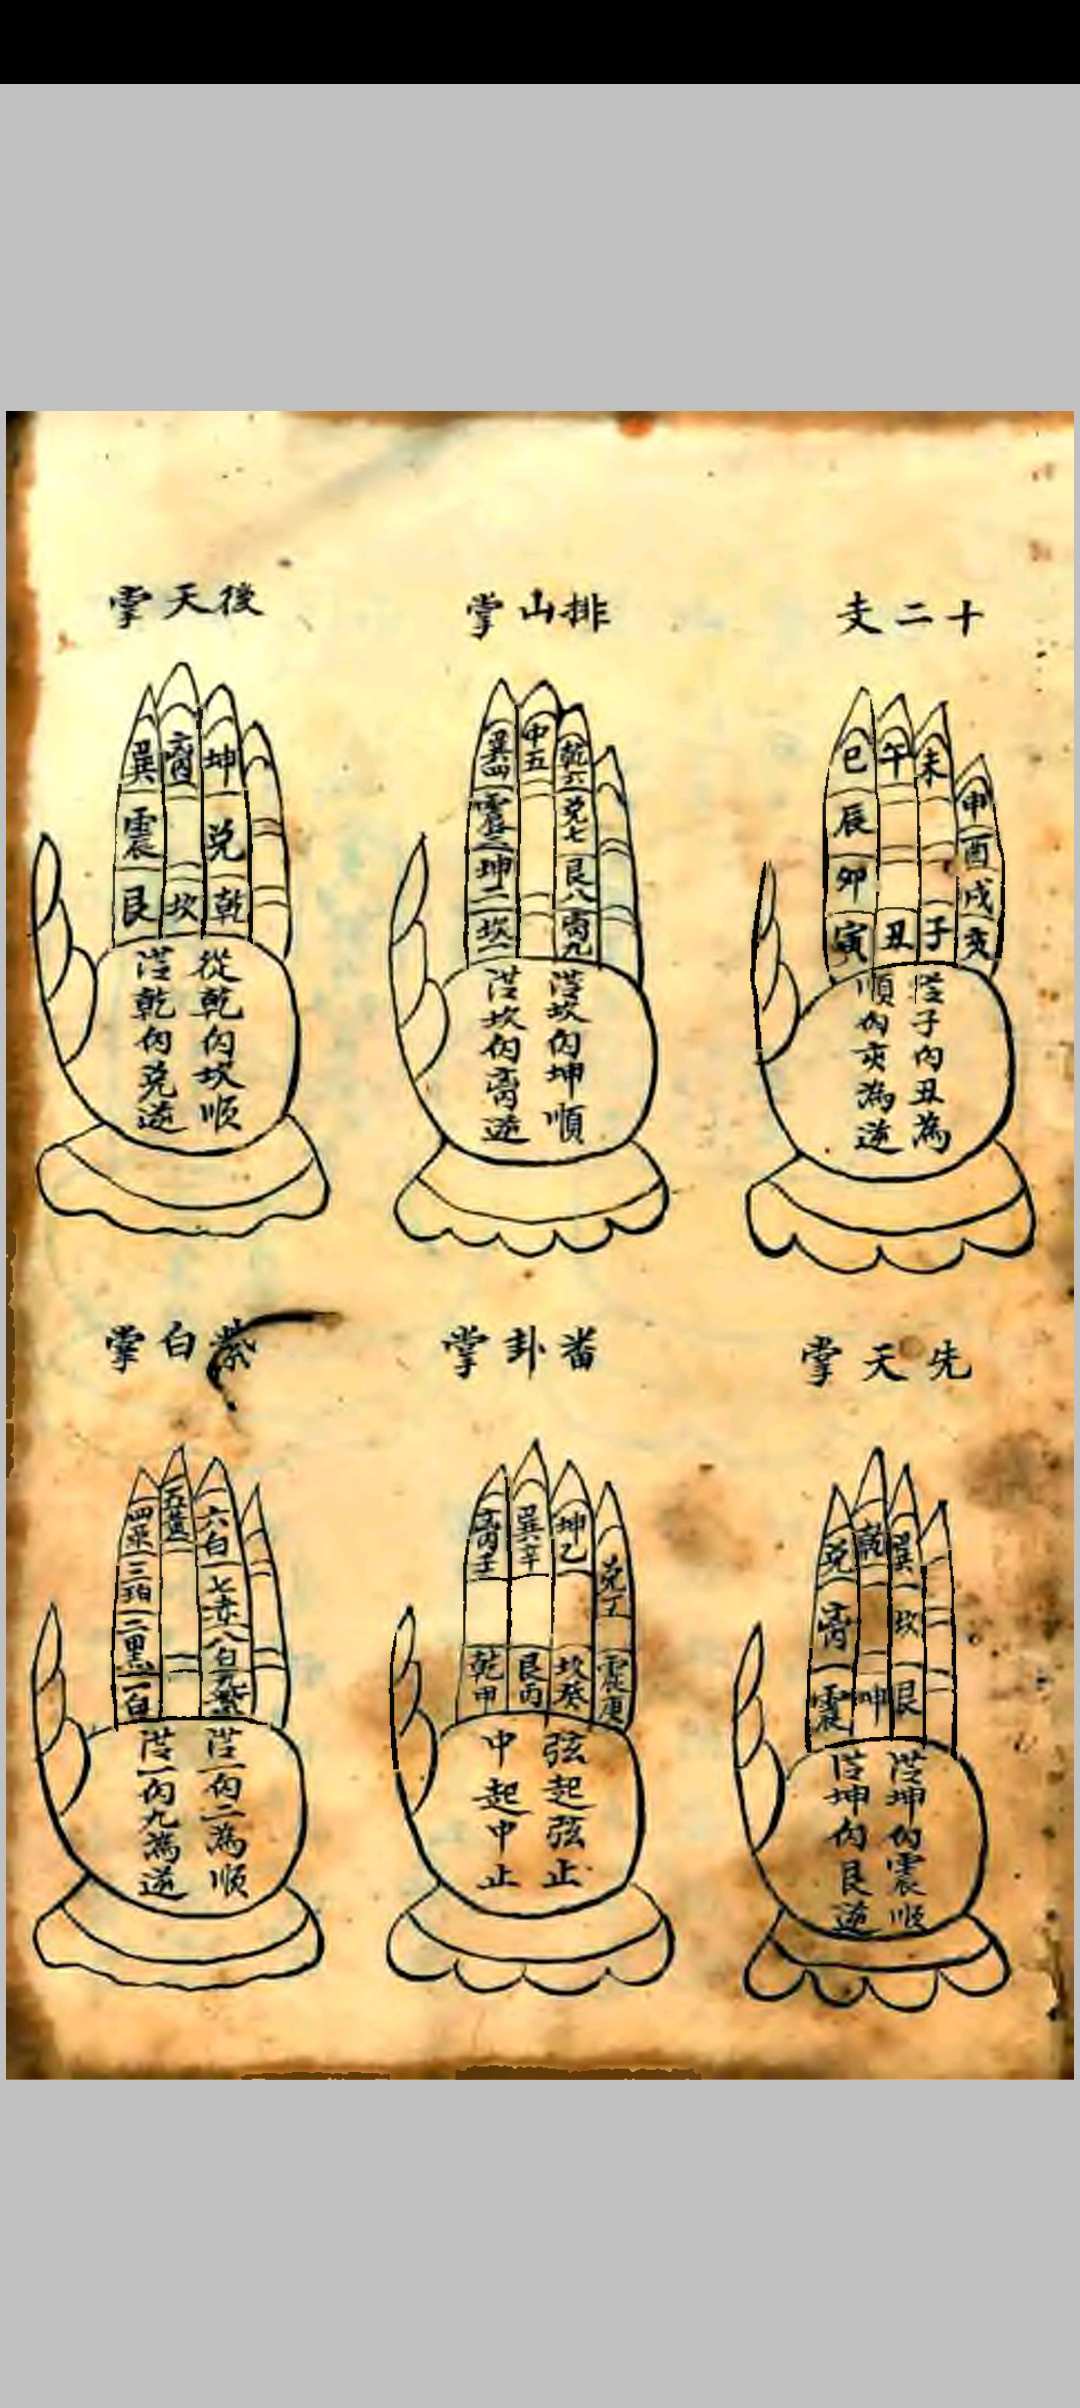 十二支
巳 午 未 申
辰 酉
卯 戌
寅 丑 子 亥
從子向丑為
順向亥為逆
排山掌
巽四 中五 乾六
震三 兌七
坤二 艮八
坎一 離九
從坎向坤順
從坎向离逆
後天掌
巽 离 坤
震 兌
艮 坎 乾
從乾向坎順
從乾向兌逆
先天掌
兌 乾 巽
离 坎
震 坤 艮
從坤向震順
從坤向艮逆
番卦掌
离壬 巽辛 坤乙 兌丁
乾甲 艮丙 坎癸 震庚
弦起弦止
中起中止
紫白掌
四巫 五黃 六白
三珀 七赤
二黑 八白
一白 九紫
從一向二為順
從一向九為逆